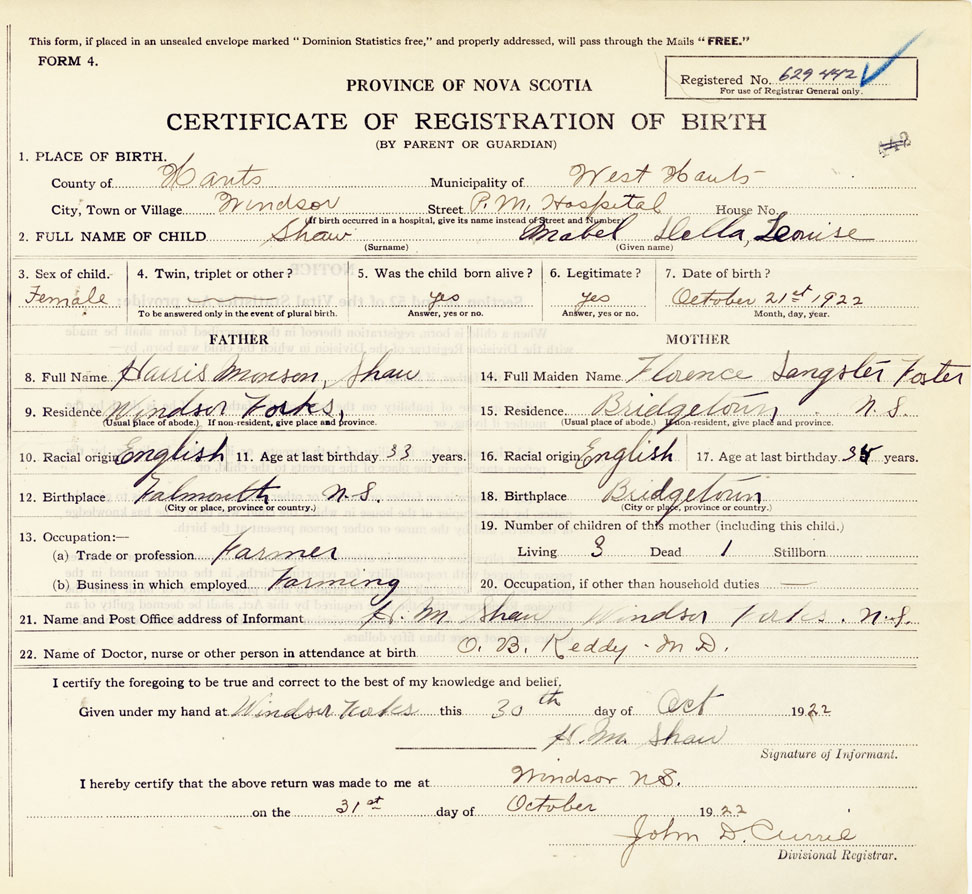 This form, if placed in an unsealed envelope marked "Dominion Statistics free," and properly addressed, will pass through the Mails "FREE."
FORM 4.
Registered No. 629442
For use of Registrar General only.
PROVINCE OF NOVA SCOTIA
CERTIFICATE OF REGISTRATION OF BIRTH
(BY PARENT OR GUARDIAN)
1. PLACE OF BIRTH.
County of Hants Municipality of West Hants
City, Town or Village Windsor Street P.M. Hospital House No.
(If birth occurred in a hospital, give its name instead of Street and Number)
2. FULL NAME OF CHILD Shaw Mabel Della, Leouise
(Surname) (Given name)
3. Sex of child. 4. Twin, triplet or other? 5. Was the child born alive? 6. Legitimate? 7. Date of birth?
Female yes yes October 21st 1922
To be answered only in the event of plural birth. Answer, yes or no. Answer, yes or no. Month, day, year.
FATHER MOTHER
8. Full Name Harris Monson, Shaw 14. Full Maiden Name Florence Sangster Foster
9. Residence Windsor Forks, 15. Residence. Bridgetown. N.S.
(Usual place of abode.) If non-resident, give place and province. (Usual place of abode.) If non-resident, give place and province.
10. Racial origin English 11. Age at last birthday 33 years. 16. Racial origin English 17. Age at last birthday 35 years.
12. Birthplace Falmouth N.S. 18. Birthplace Bridgetown
(City or place, province or country.) (City or place, province or country.)
19. Number of children of this mother (including this child.)
13. Occupation:—
(a) Trade or profession Farmer Living 3 Dead 1 Stillborn
(b) Business in which employed Farming 20. Occupation, if other than household duties —
21. Name and Post Office address of Informant H. M. Shaw Windsor Forks. N.S.
22. Name of Doctor, nurse or other person in attendance at birth O. B. Keddy. M D.
I certify the foregoing to be true and correct to the best of my knowledge and belief,
Given under my hand at Windsor Forks this 30th day of Oct 1922
H. M. Shaw
Signature of Informant.
I hereby certify that the above return was made to me at Windsor N.S.
on the 31st day of October 1922
John D. Currie
Divisional Registrar.